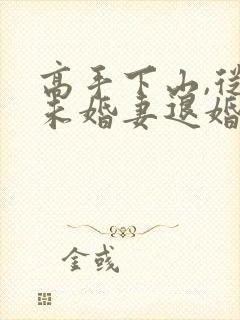 高手下山,從
未婚妻退婚
金彧